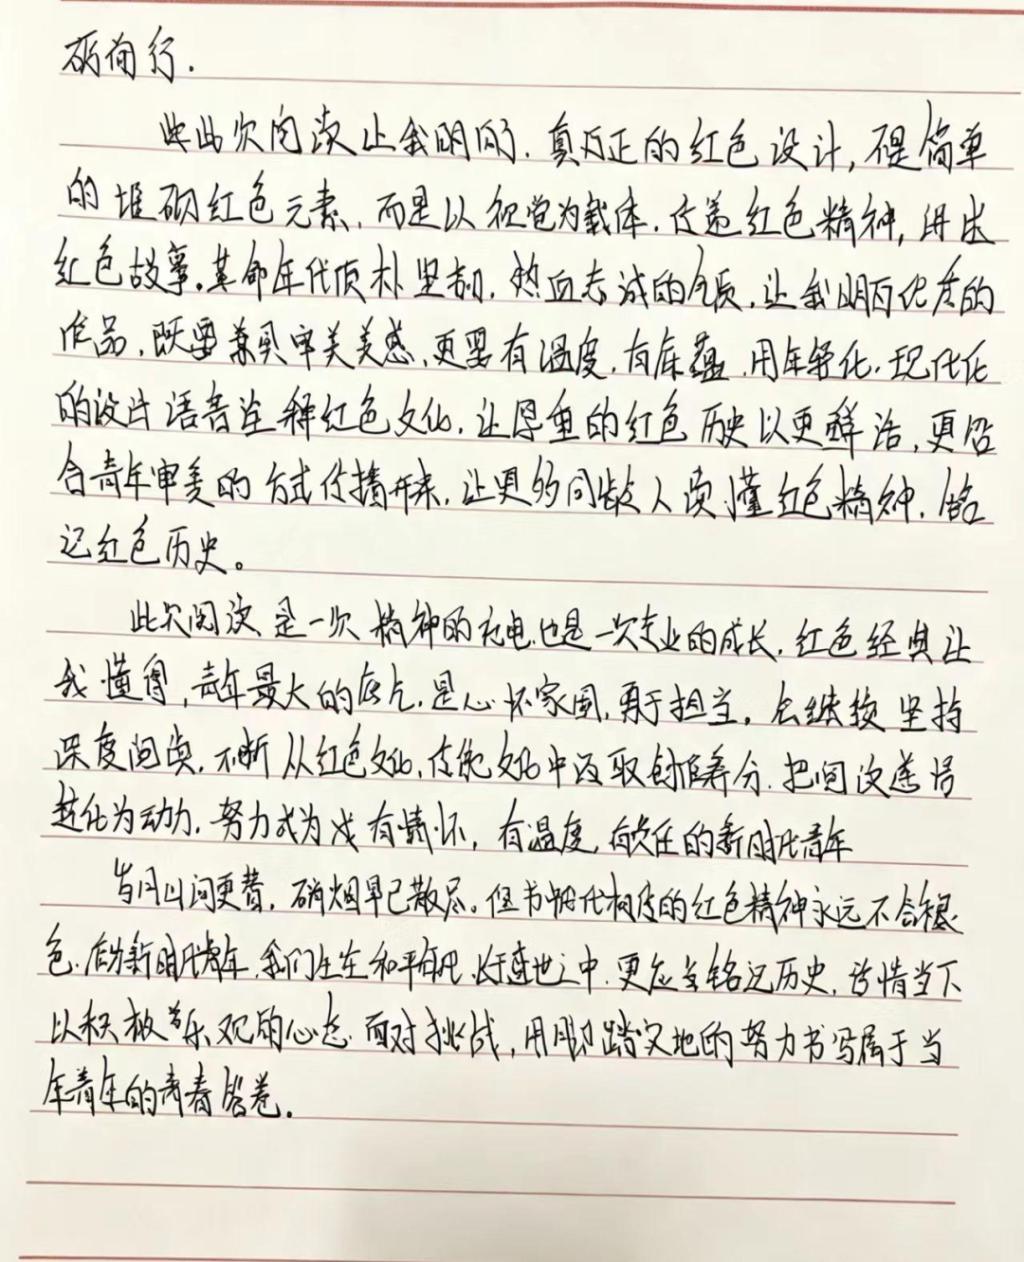 砺前行.
此次阅读让我明白,真正的红色设计,不是简单
的堆砌红色元素,而是以视觉为载体,传递红色精神,讲述
红色故事。革命年代质朴坚韧,热血赤诚的品质,让我明白优秀的
作品,既要兼具审美美感,更要有温度,有底蕴,用年轻化,现代化
的设计语言诠释红色文化,让厚重的红色历史以更鲜活,更贴
合青年审美的方式传播开来,让更多同龄人读懂红色精神,铭
记红色历史。
此次阅读,是一次精神的充电,也是一次专业的成长,红色经典让
我懂得,青年最大的底气,是心怀家国,勇于担当。会继续坚持
深度阅读,不断从红色文化,传统文化中汲取创作养分,把阅读感悟
转化为动力,努力成为 有情怀,有温度,有责任的新时代青年
岁月山河更替,硝烟早已散尽。但书中时代相传的红色精神永远不会褪
色,作为新时代青年,我们生在和平年代,长于盛世之中,更应当铭记历史,珍惜当下
以积极乐观的心态面对挑战,用脚踏实地的努力书写属于当
年青年的青春答卷.